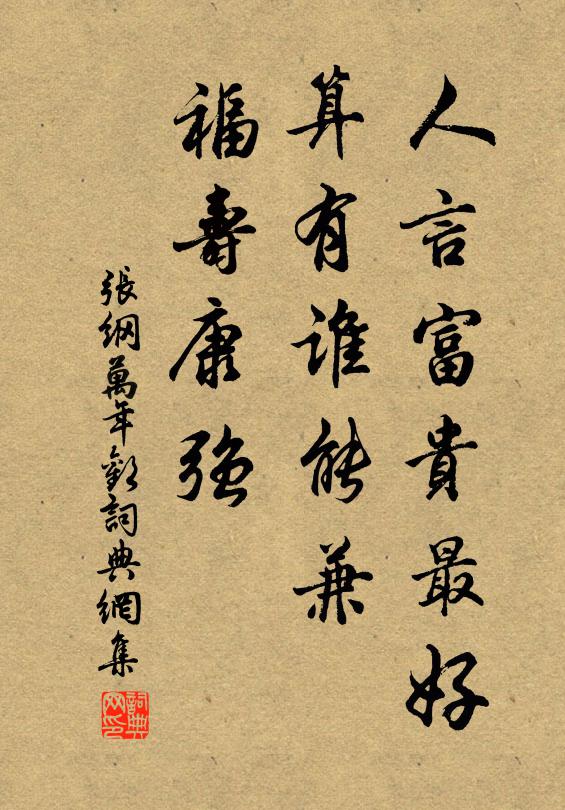 人言富貴最好
算有誰能兼
福壽康強
張綱萬年歡詞典網集
詞典网印